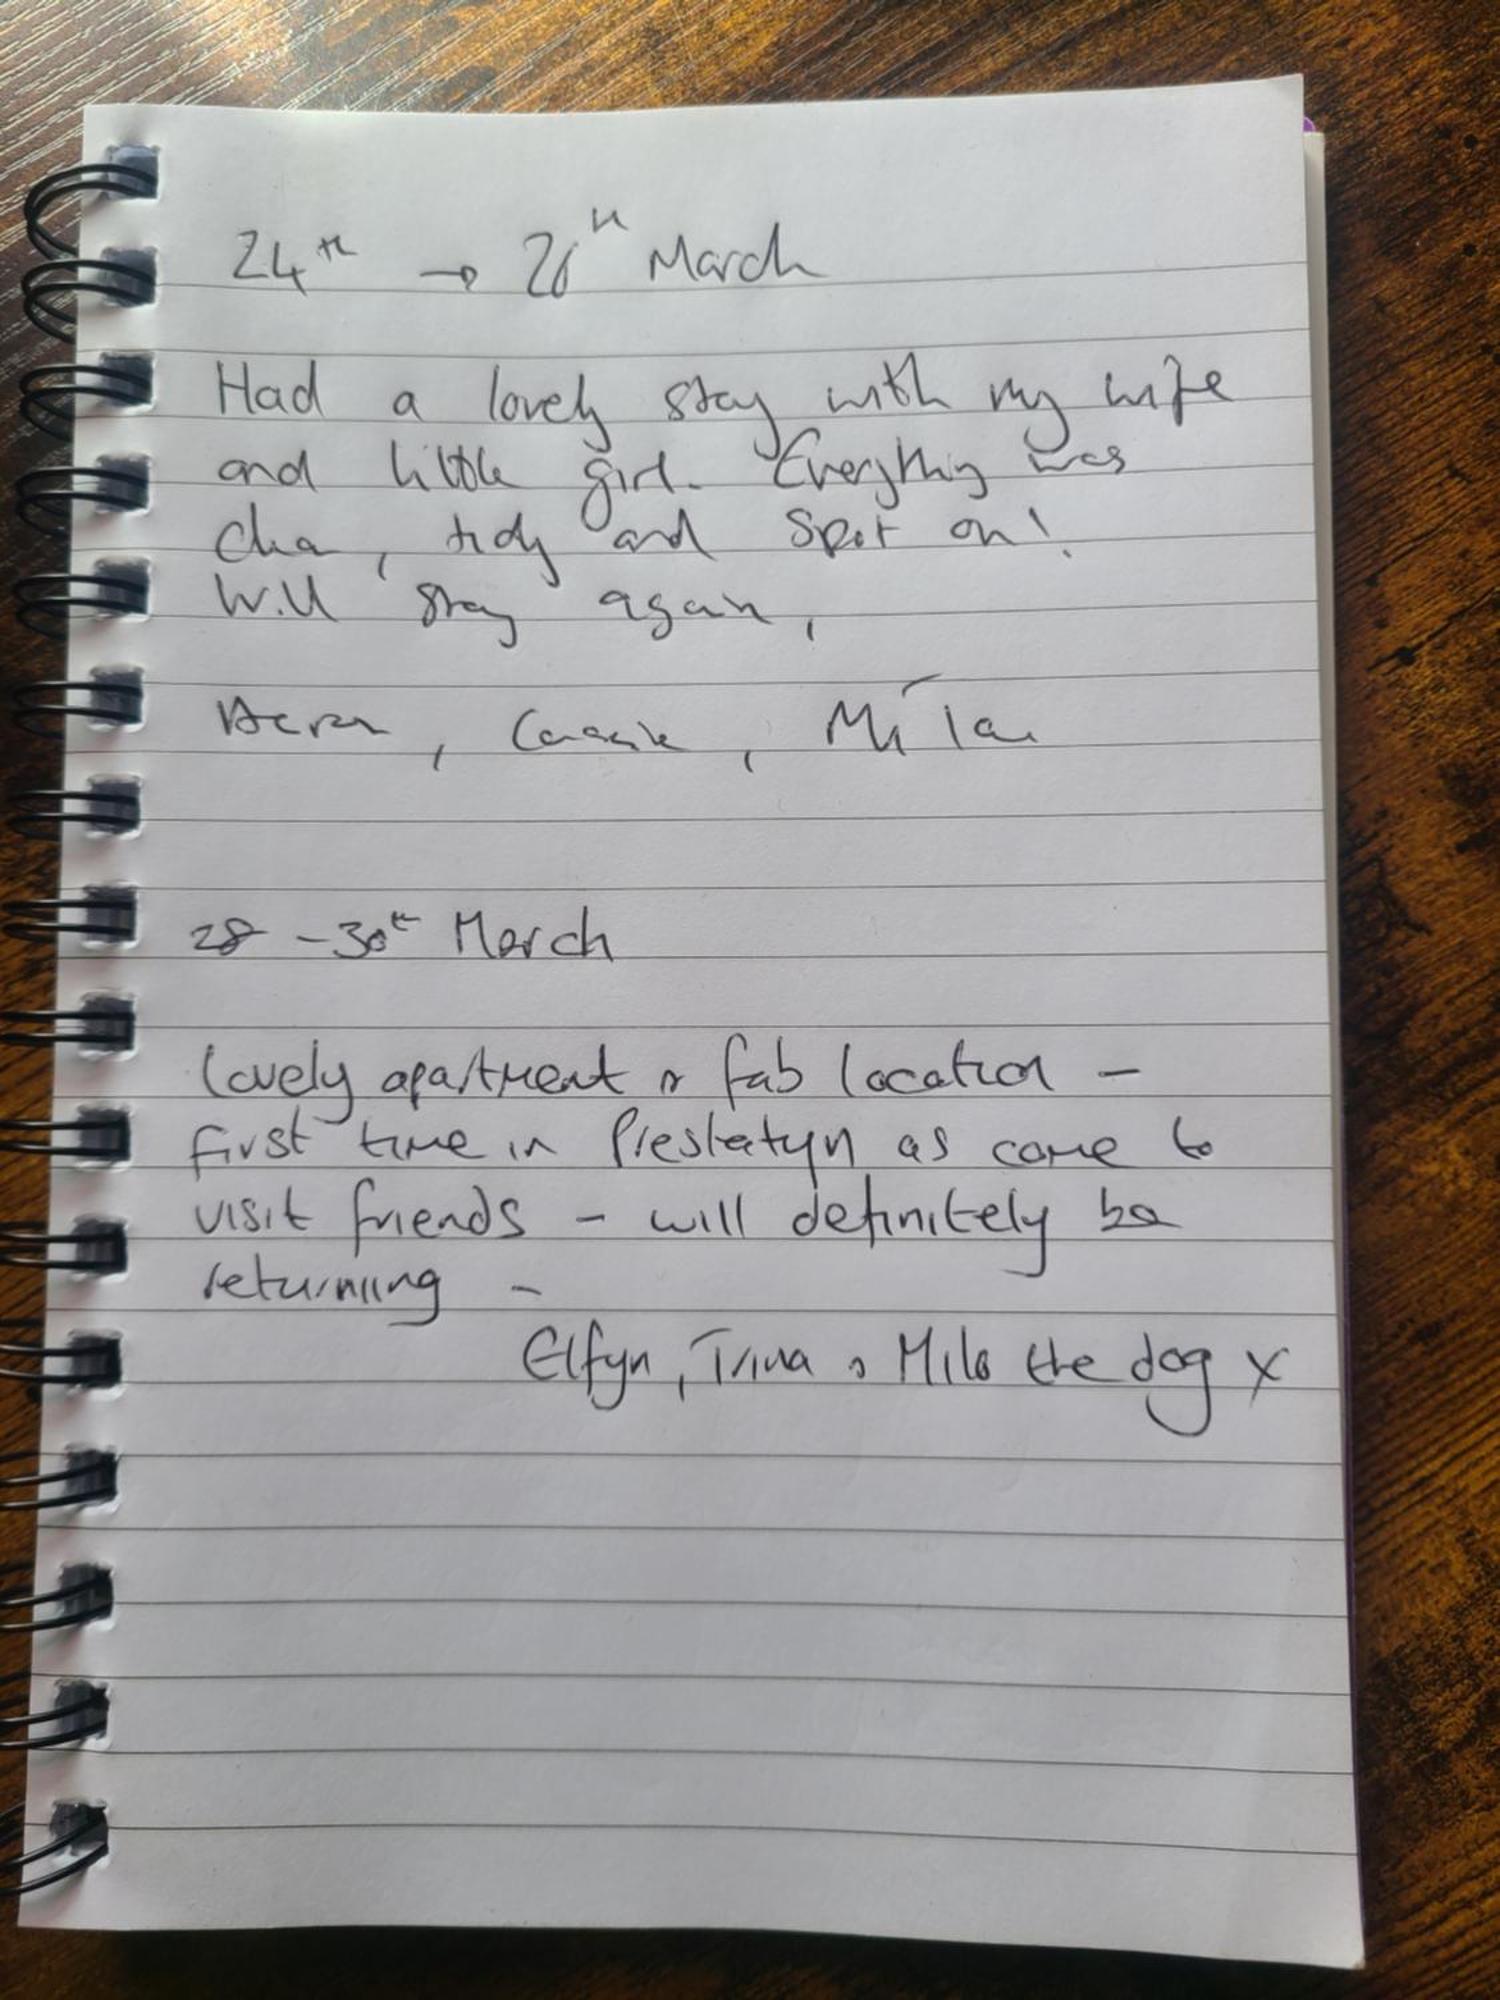 24th → 26th March
Had a lovely stay with my wife
and little girl. Everything was
clean, tidy and spot on!
Will stay again,
28 - 30th March
Lovely apartment & fab location -
first time in Prestatyn as came to
visit friends - will definitely be
returning -
Elfyn, Trina & Milo the dog x